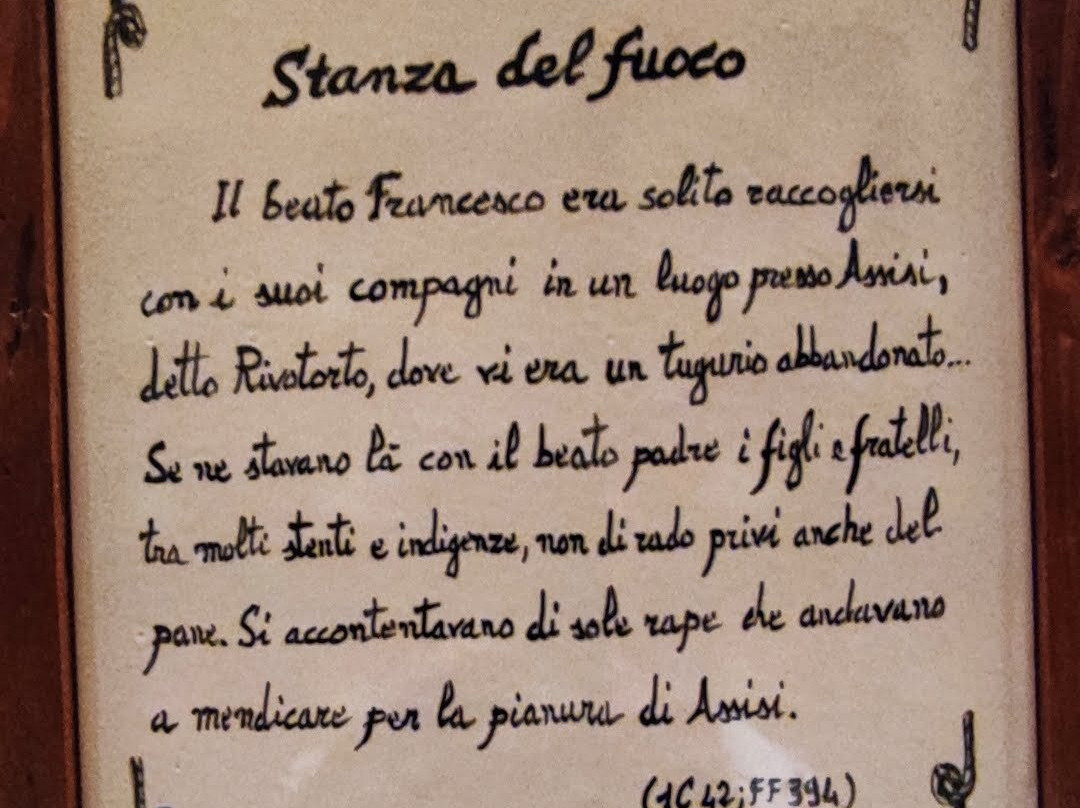 Stanza del fuoco
Il beato Francesco era solito raccogliersi
con i suoi compagni in un luogo presso Assisi,
detto Rivotorto, dove vi era un tugurio abbandonato...
Se ne stavano là con il beato padre i figli e fratelli,
tra molti stenti e indigenze, non di rado privi anche del
pane. Si accontentavano di sole rape che andavano
a mendicare per la pianura di Assisi.
(1C 42; FF 394)